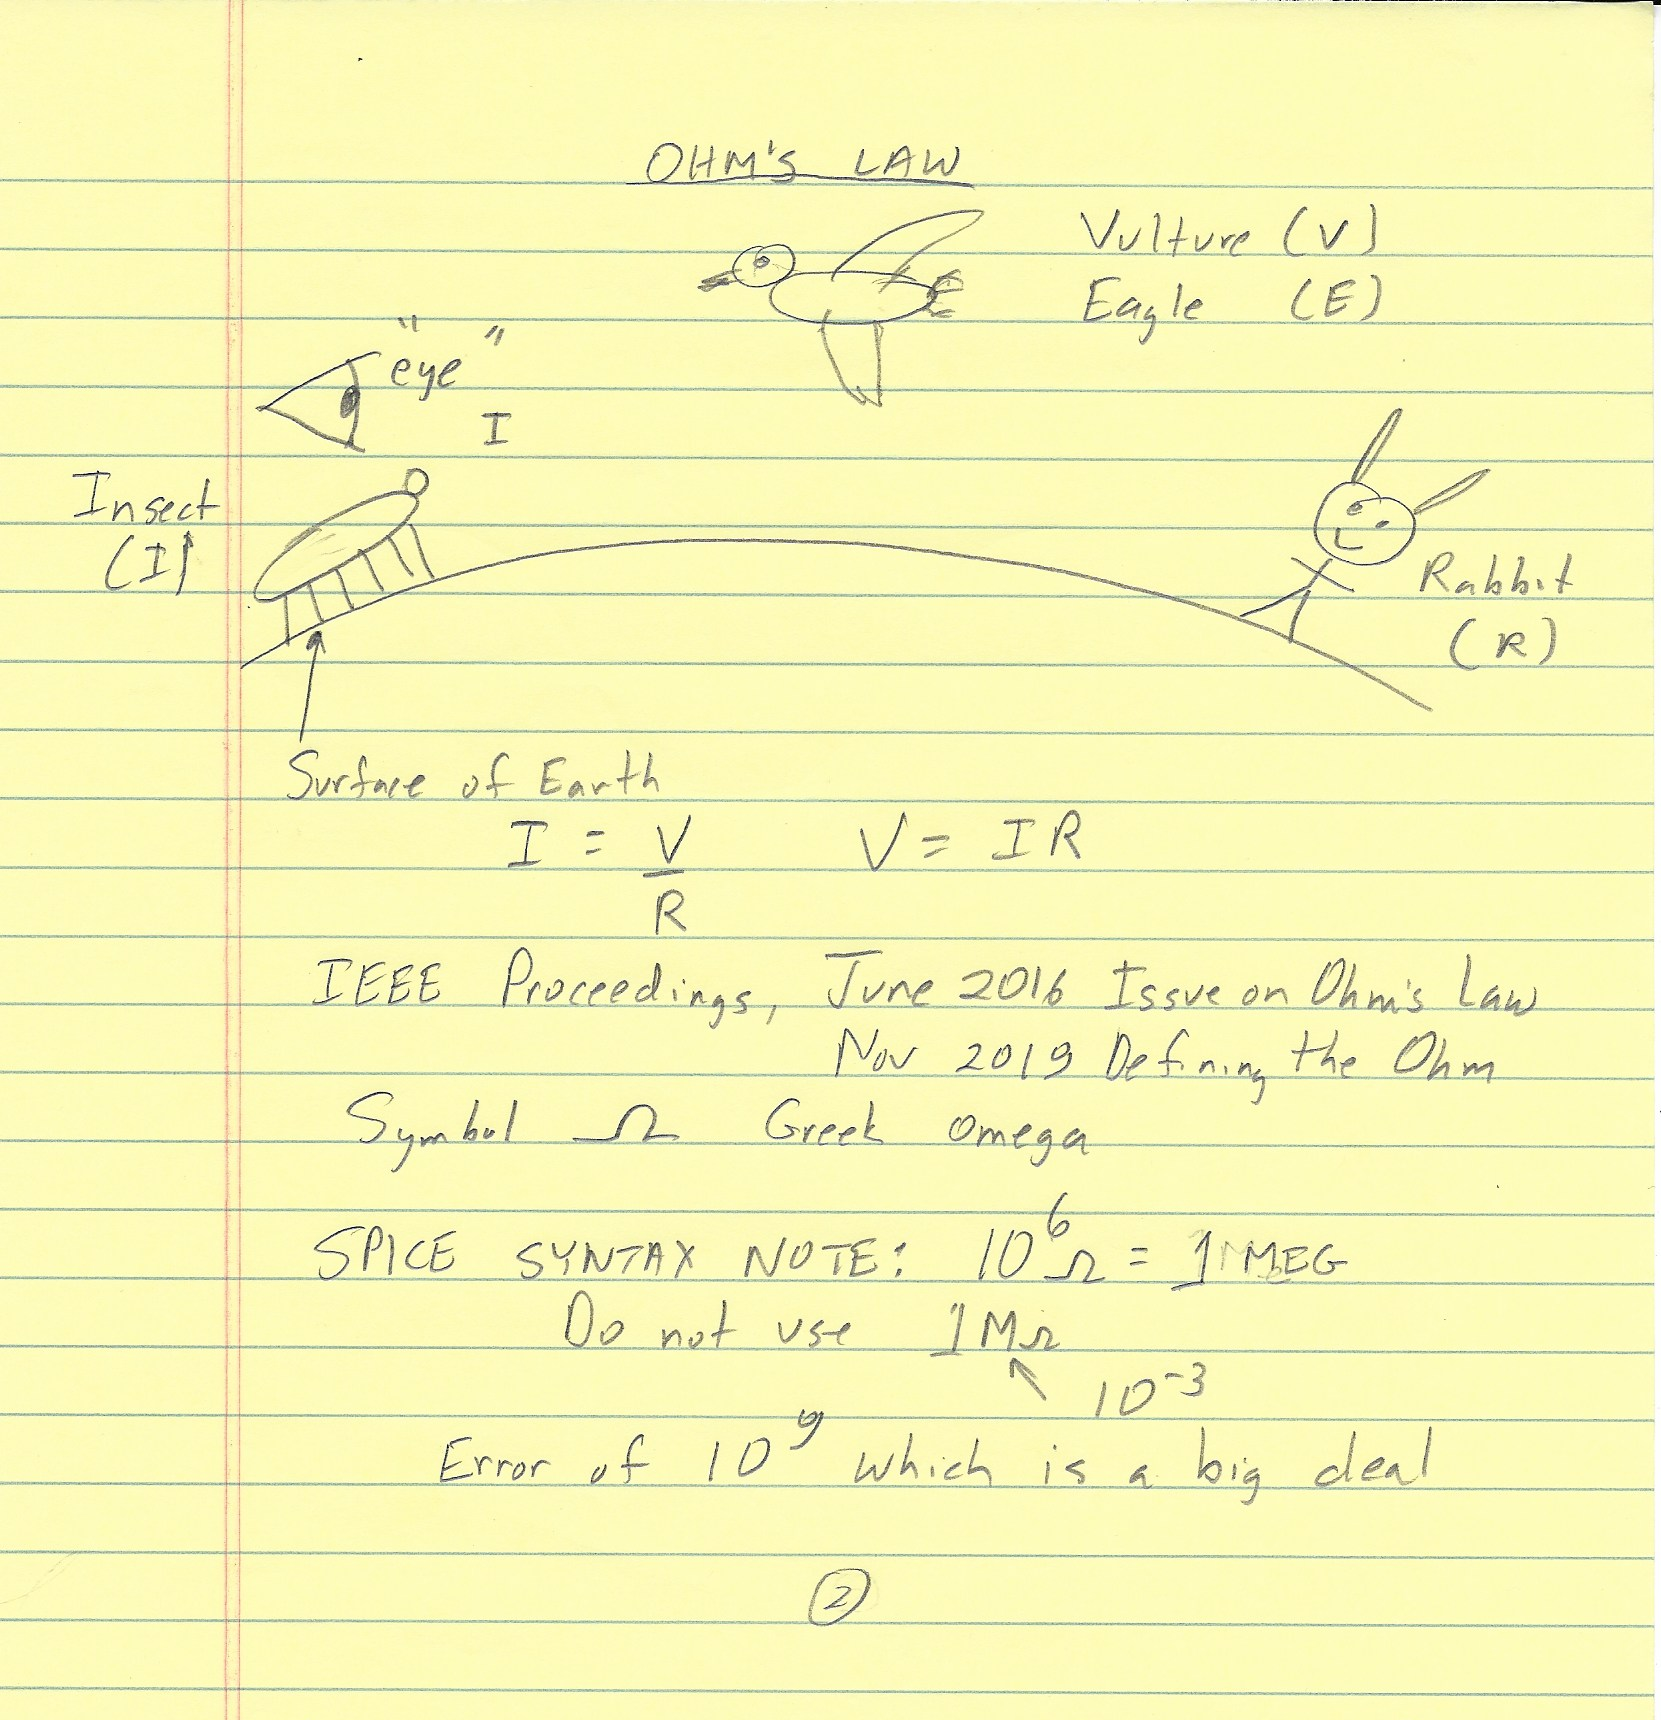 OHM'S LAW
Vulture (V)
Eagle (E)
"eye"
I
Insect
(I)
Rabbit
(R)
Surface of Earth
I = V/R V = IR
IEEE Proceedings, June 2016 Issue on Ohm's Law
Nov 2019 Defining the Ohm
Symbol Ω Greek omega
SPICE SYNTAX NOTE: 10⁶Ω = 1 MEG
Do not use 1MΩ
10⁻³
Error of 10⁹ which is a big deal
2